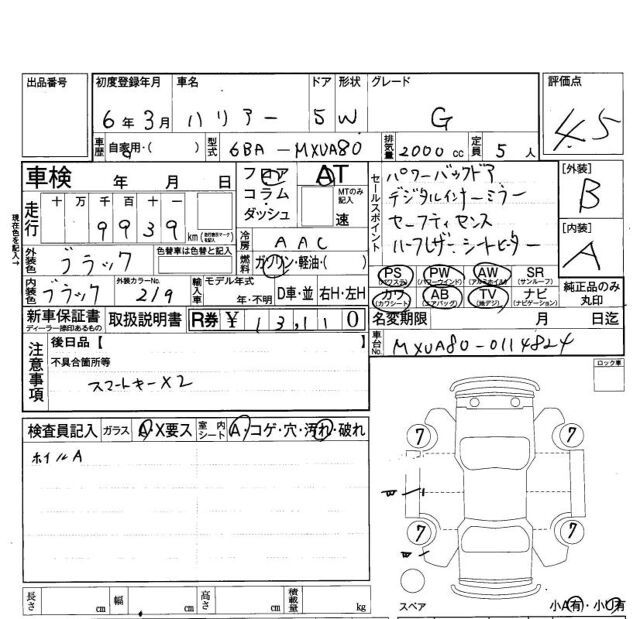 出品番号 初度登録年月 車名 ドア 形状 グレード 評価点
6年3月 ハリアー 5 W G 4.5
車歴 自家用・( ) 型式 6BA-MXUA80 排気量 2000cc 定員 5人
車検 年 月 日 フロア コラム ダッシュ AT MTのみ記入 速
セールスポイント パワーバックドア
デジタルインナーミラー
セーフティセンス
ハーフレザーシートヒーター
[外装] B
[内装] A
現在色を記入→
走行 十 万 千 百 十 一
9939 km
冷房 AAC
外装色 ブラック 色替車は色替と記入 燃料 ガソリン・軽油・( )
内装色 ブラック 外装カラーNo. 219 輸入車 モデル年式 年・不明 D車・並 右H・左H
PS (パワステ) PW (パワーウインド) AW (アルミホイル) SR (サンルーフ)
カワ (カワシート) AB (エアバッグ) TV (地デジ) ナビ (ナビゲーション)
純正品のみ丸印
新車保証書 ディーラー捺印あるもの 取扱説明書 R券 ¥ 13,110
名変期限 月 日迄
車台No. MXUA80-0114824
注意事項 後日品【
不具合箇所等
スマートキーX2
ロック車
検査員記入 ガラス A・X要ス 室内シート A・コゲ・穴・汚れ・破れ
ホイルA
7 7
W 1
7 7
W
長さ cm 幅 cm 高さ cm 積載量 kg
スペア 小A有・小U有